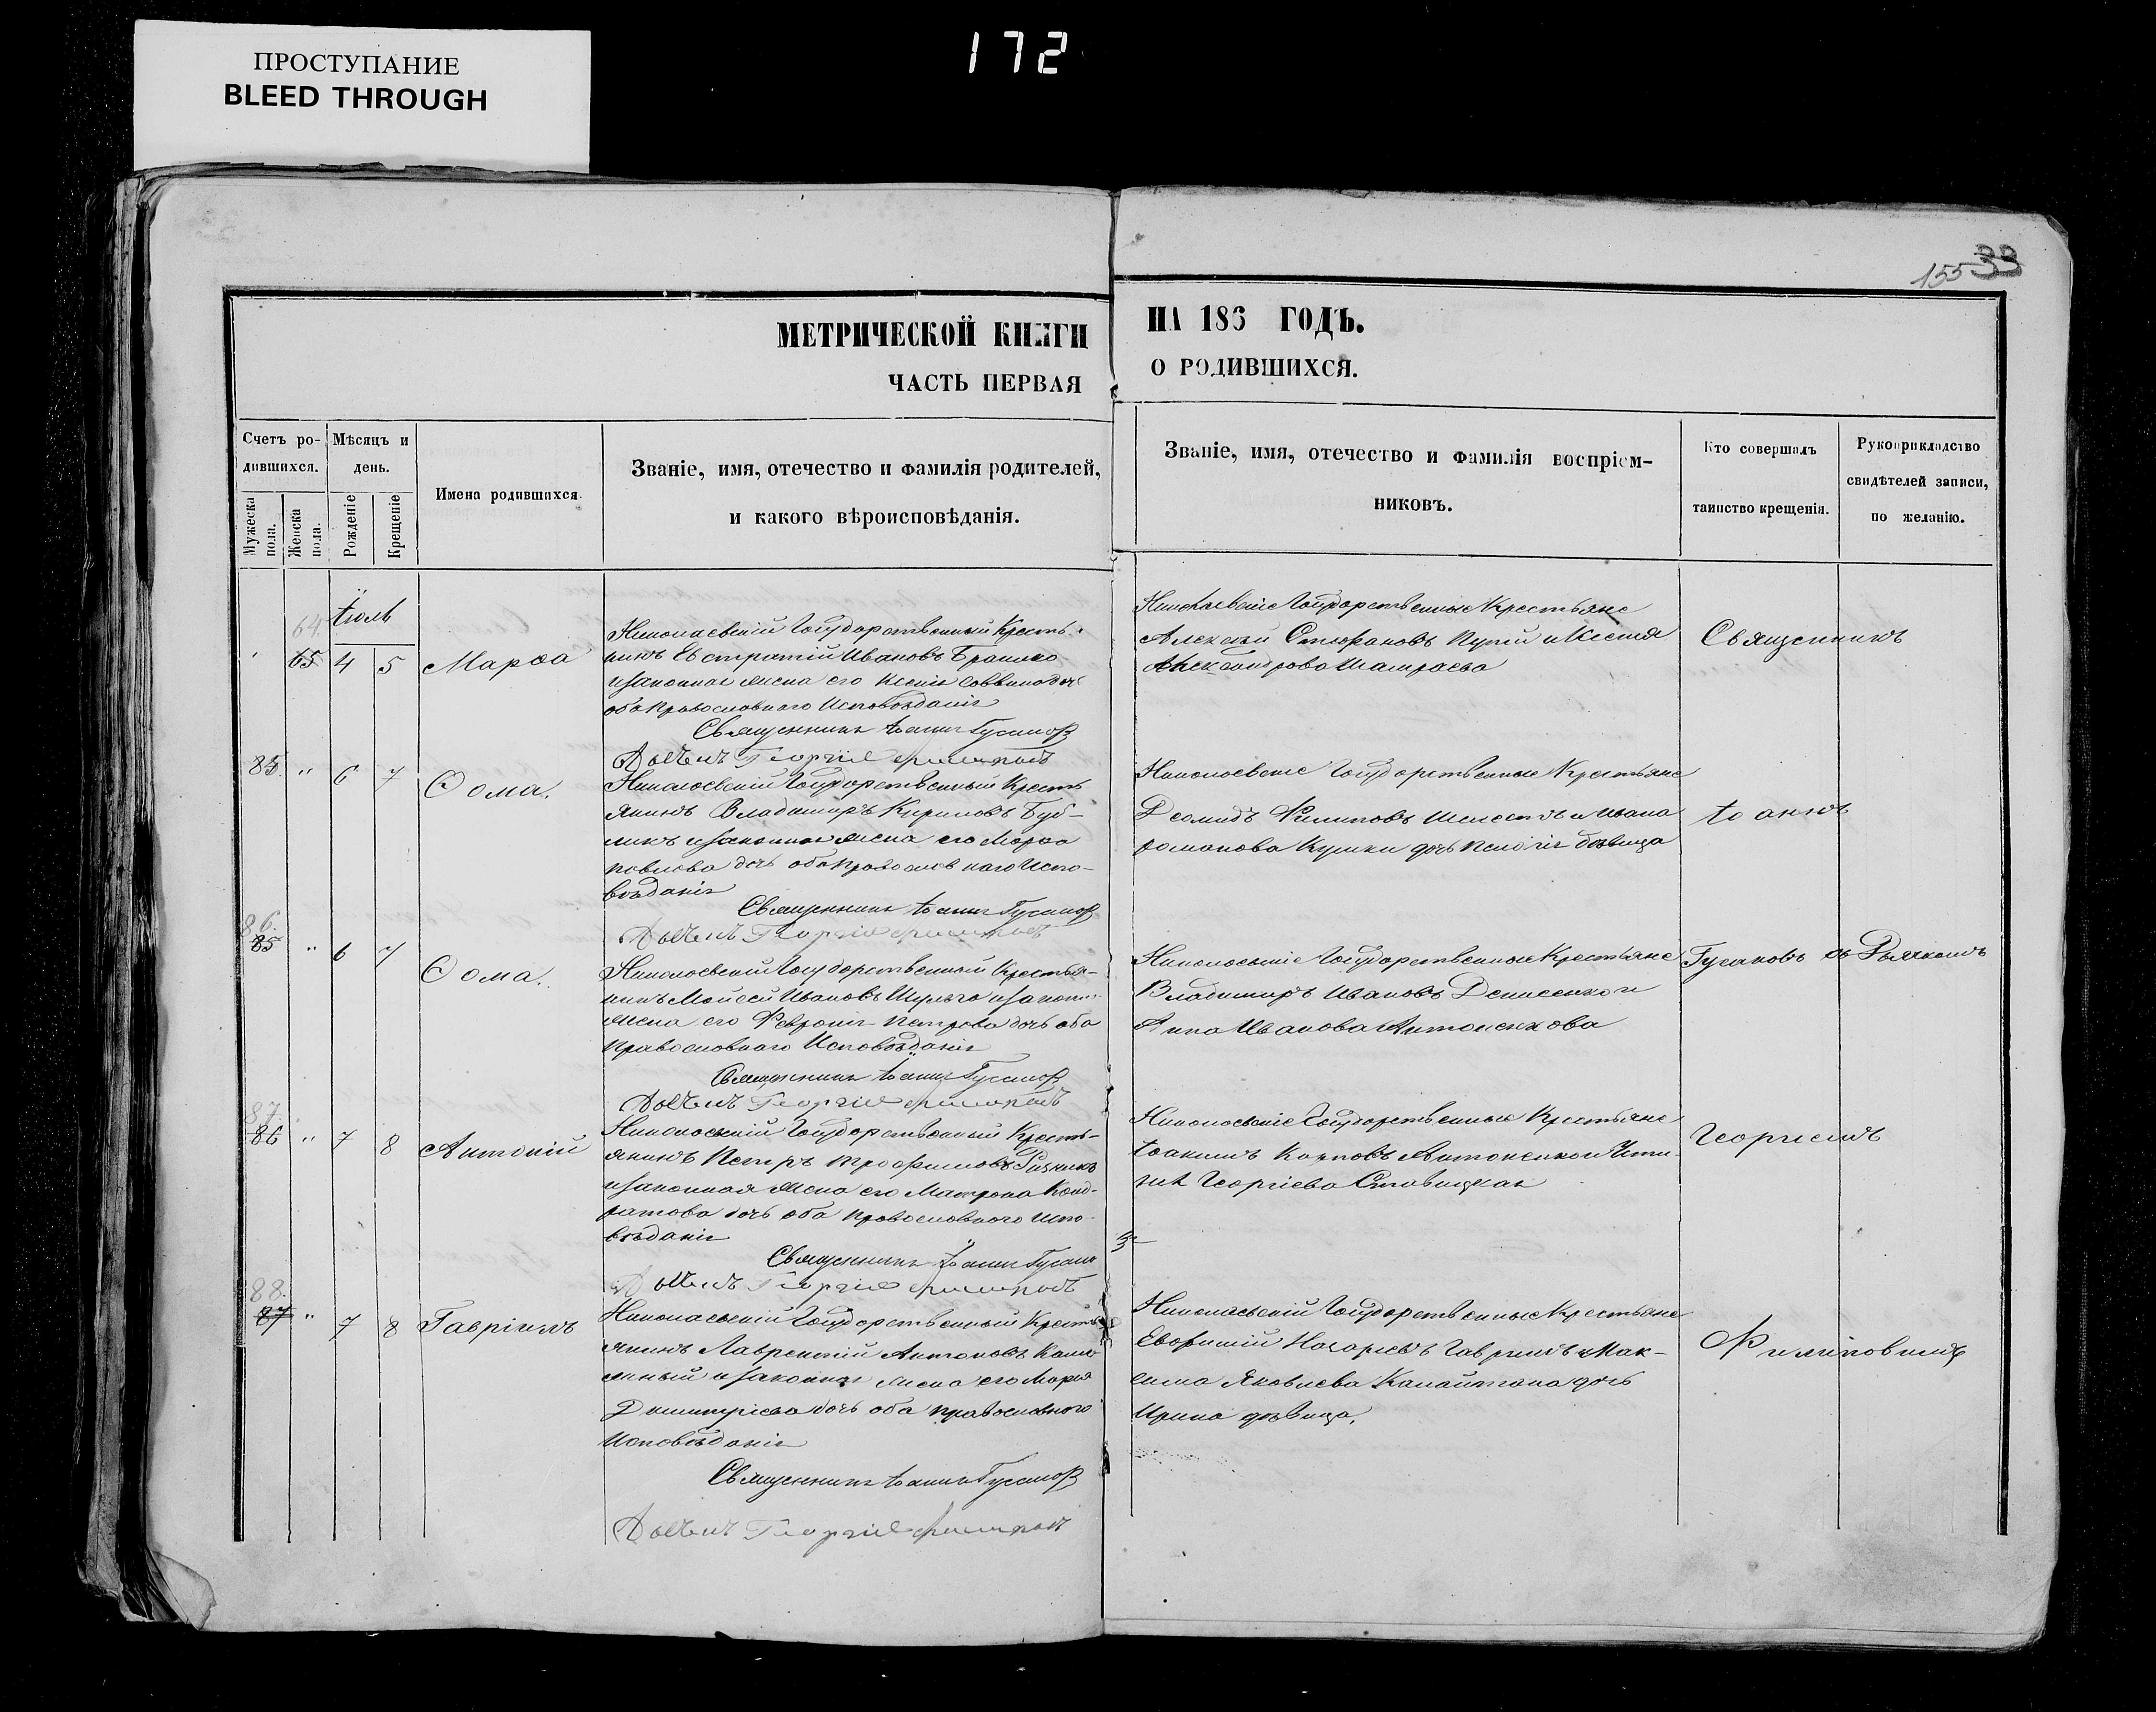 ПРОСТУПАНИЕ
BLEED THROUGH
172
155 33
МЕТРИЧЕСКОЙ КНИГИ
ЧАСТЬ ПЕРВАЯ
НА 186 ГОДЪ.
О РОДИВШИХСЯ.
Счетъ ро-
дившихся.
Мужеска пола.
Женска пола.
Мѣсяцъ и
день.
Рожденіе
Крещеніе
Имена родившихся.
Званіе, имя, отечество и фамилія родителей,
и какого вѣроисповѣданія.
Званіе, имя, отечество и фамилія воспріем-
никовъ.
Кто совершалъ
таинство крещенія.
Рукоприкладство
свидѣтелей записи,
по желанію.
Іюль
64.
65 4 5 Марѳа
Николаевскій Государственный Кресть-
нинъ Евстратій Ивановъ
и законная жена его Ксенія дочь
оба православнаго Исповѣданія
Священникъ Іоаннъ Гусаковъ
Дьячекъ Георгій Филиповъ
Николаевскіе Государственные Крестьяне
Алексѣй Стефановъ и Ксенія
Александрова
Священникъ
85. " 6 7 Ѳома.
Николаевскій Государственный Кресть
янинъ Владимиръ Кириловъ Буб-
ликъ и законная жена его Марѳа
Павлова дочь оба Православнаго Испо-
вѣданія
Священникъ Іоаннъ Гусаковъ
Дьячекъ Георгій Филиповъ
Николаевскіе Государственные Крестьяне
Деомидъ Филиповъ и Ивана
Романова дочь Пелагія дѣвица
Іоаннъ
86.
85 " 6 7 Ѳома.
Николаевскій Государственный Крестья-
нинъ Мойсей Ивановъ Шульга и законн.
жена его Февронія Петрова дочь оба
Православнаго Исповѣданія
Священникъ Іоаннъ Гусаковъ
Дьячекъ Георгій Филиповъ
Николаевскіе Государственные Крестьяне
Владимиръ Ивановъ Денисенко и
Анна Иванова Антоненкова
Гусаковъ съ Дьячкомъ
87.
86 " 7 8 Антоній
Николаевскій Государственный Кресть-
янинъ Петръ Трофимовъ Ризникъ
и законная жена его Матрона Конд-
ратова дочь оба православнаго испо-
вѣданія
Священникъ Іоаннъ Гусаковъ
Дьячекъ Георгій Филиповъ
Николаевскіе Государственные Крестьяне
Іоакимъ Карповъ Антоненко и
Георгіева
Георгіемъ
88.
87 " 7 8 Гавріилъ
Николаевскій Государственный Кресть
янинъ Лаврентій Антоновъ
и законная жена его Марія
Димитріева дочь оба православнаго
Исповѣданія
Священникъ Іоаннъ Гусаковъ
Дьячекъ Георгій Филиповъ
Николаевскій Государственные Крестьяне
Евфимій Назаріевъ Гавриловъ и Мак-
сима Яковлева дочь
Ирина дѣвица.
Филиповымъ